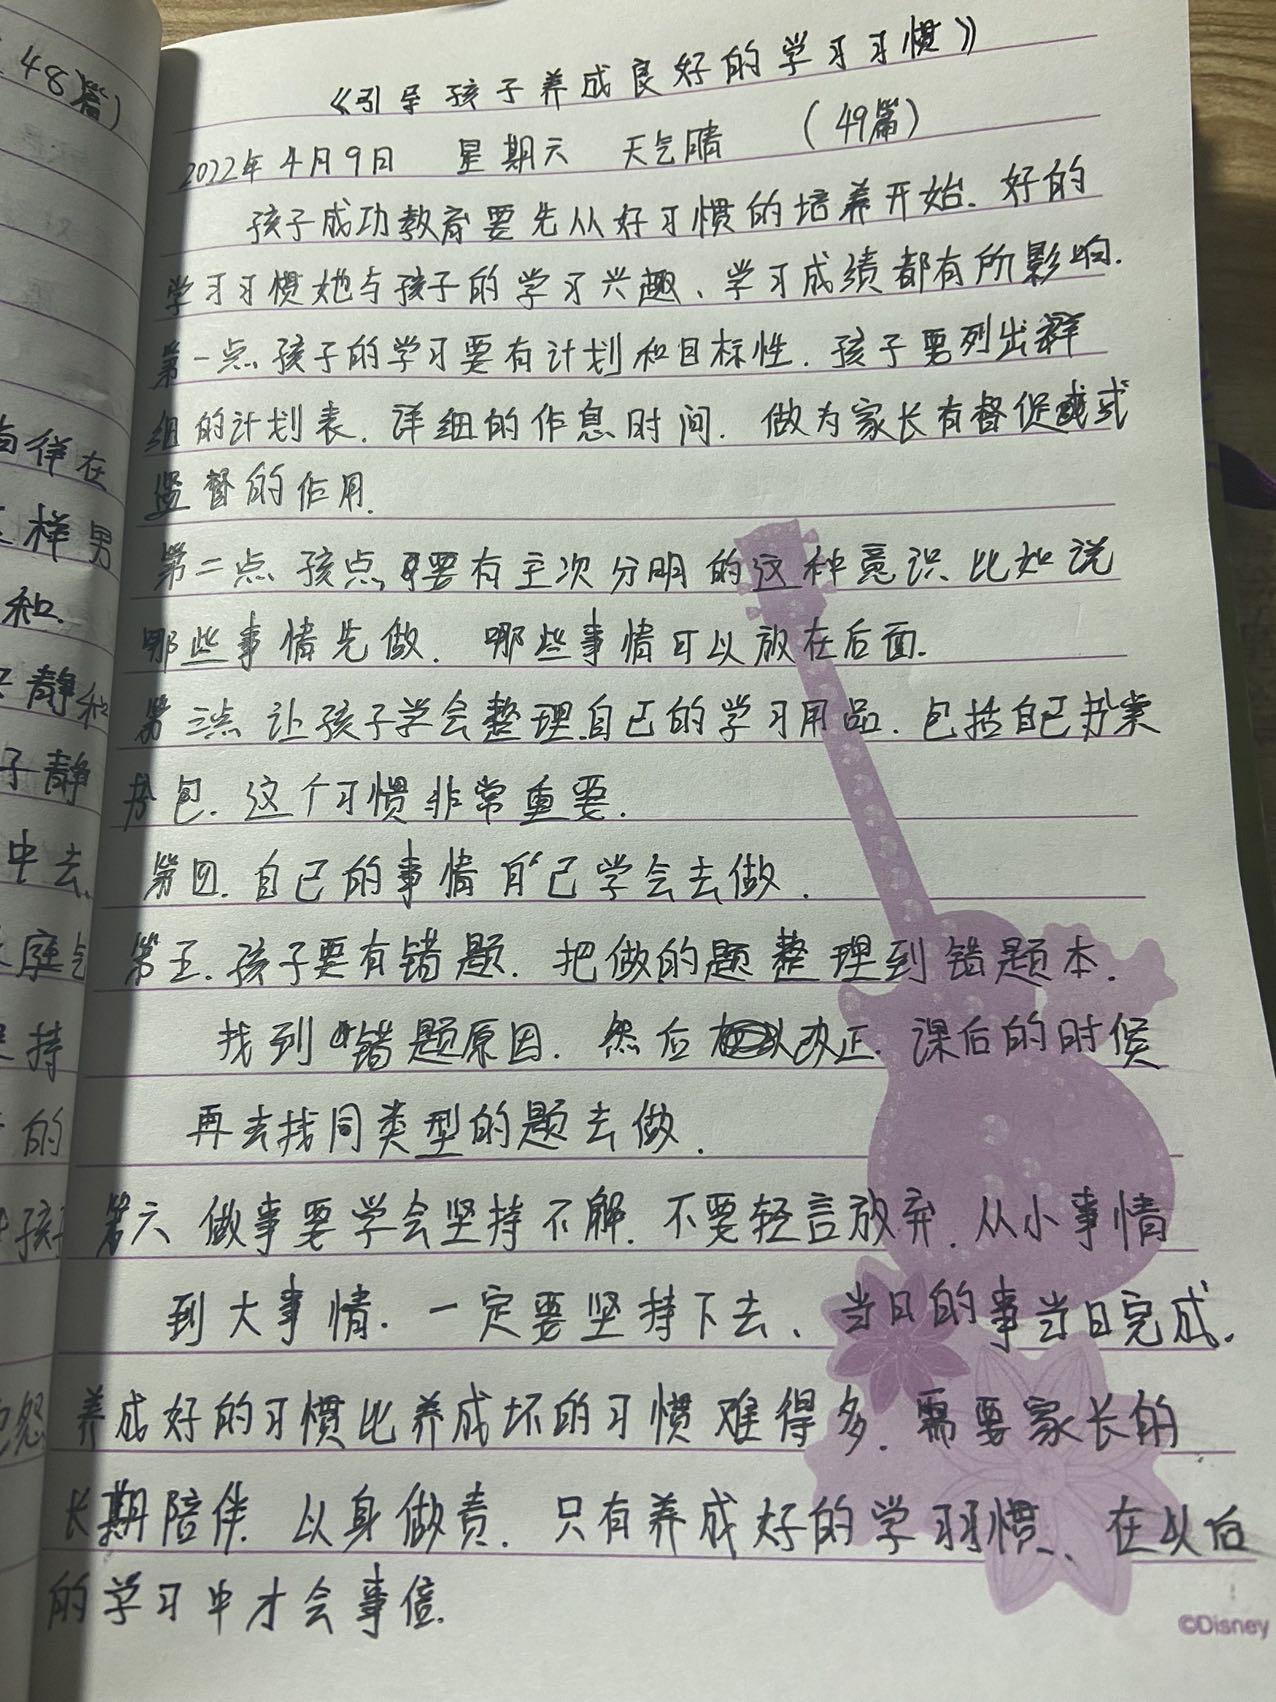 48篇)
《引导孩子养成良好的学习习惯》
2022年4月9日 星期六 天气晴 (49篇)
孩子成功教育要先从好习惯的培养开始.好的
学习习惯她与孩子的学习兴趣、学习成绩都有所影响.
第一点.孩子的学习要有计划和目标性.孩子要列出详
细的计划表.详细的作息时间.做为家长有督促或式
监督的作用.
第二点 孩点,要有主次分明的这种意识 比如说
哪些事情先做.哪些事情可以放在后面.
第三点 让孩子学会整理自己的学习用品.包括自己书案
书包.这个习惯非常重要.
第四.自己的事情自己学会去做.
第五.孩子要有错题.把做的题整理到错题本.
找到错题原因.然后改正.课后的时候
再去找同类型的题去做.
第六 做事要学会坚持不解.不要轻言放弃.从小事情
到大事情.一定要坚持下去、当日的事当日完成.
养成好的习惯比养成坏的习惯难得多.需要家长的
长期陪伴 以身做责.只有养成好的学习习惯、在以后
的学习中才会事倍.
样在
样男
和.
静和
子静
中去.
庭
持
的
孩
©Disney